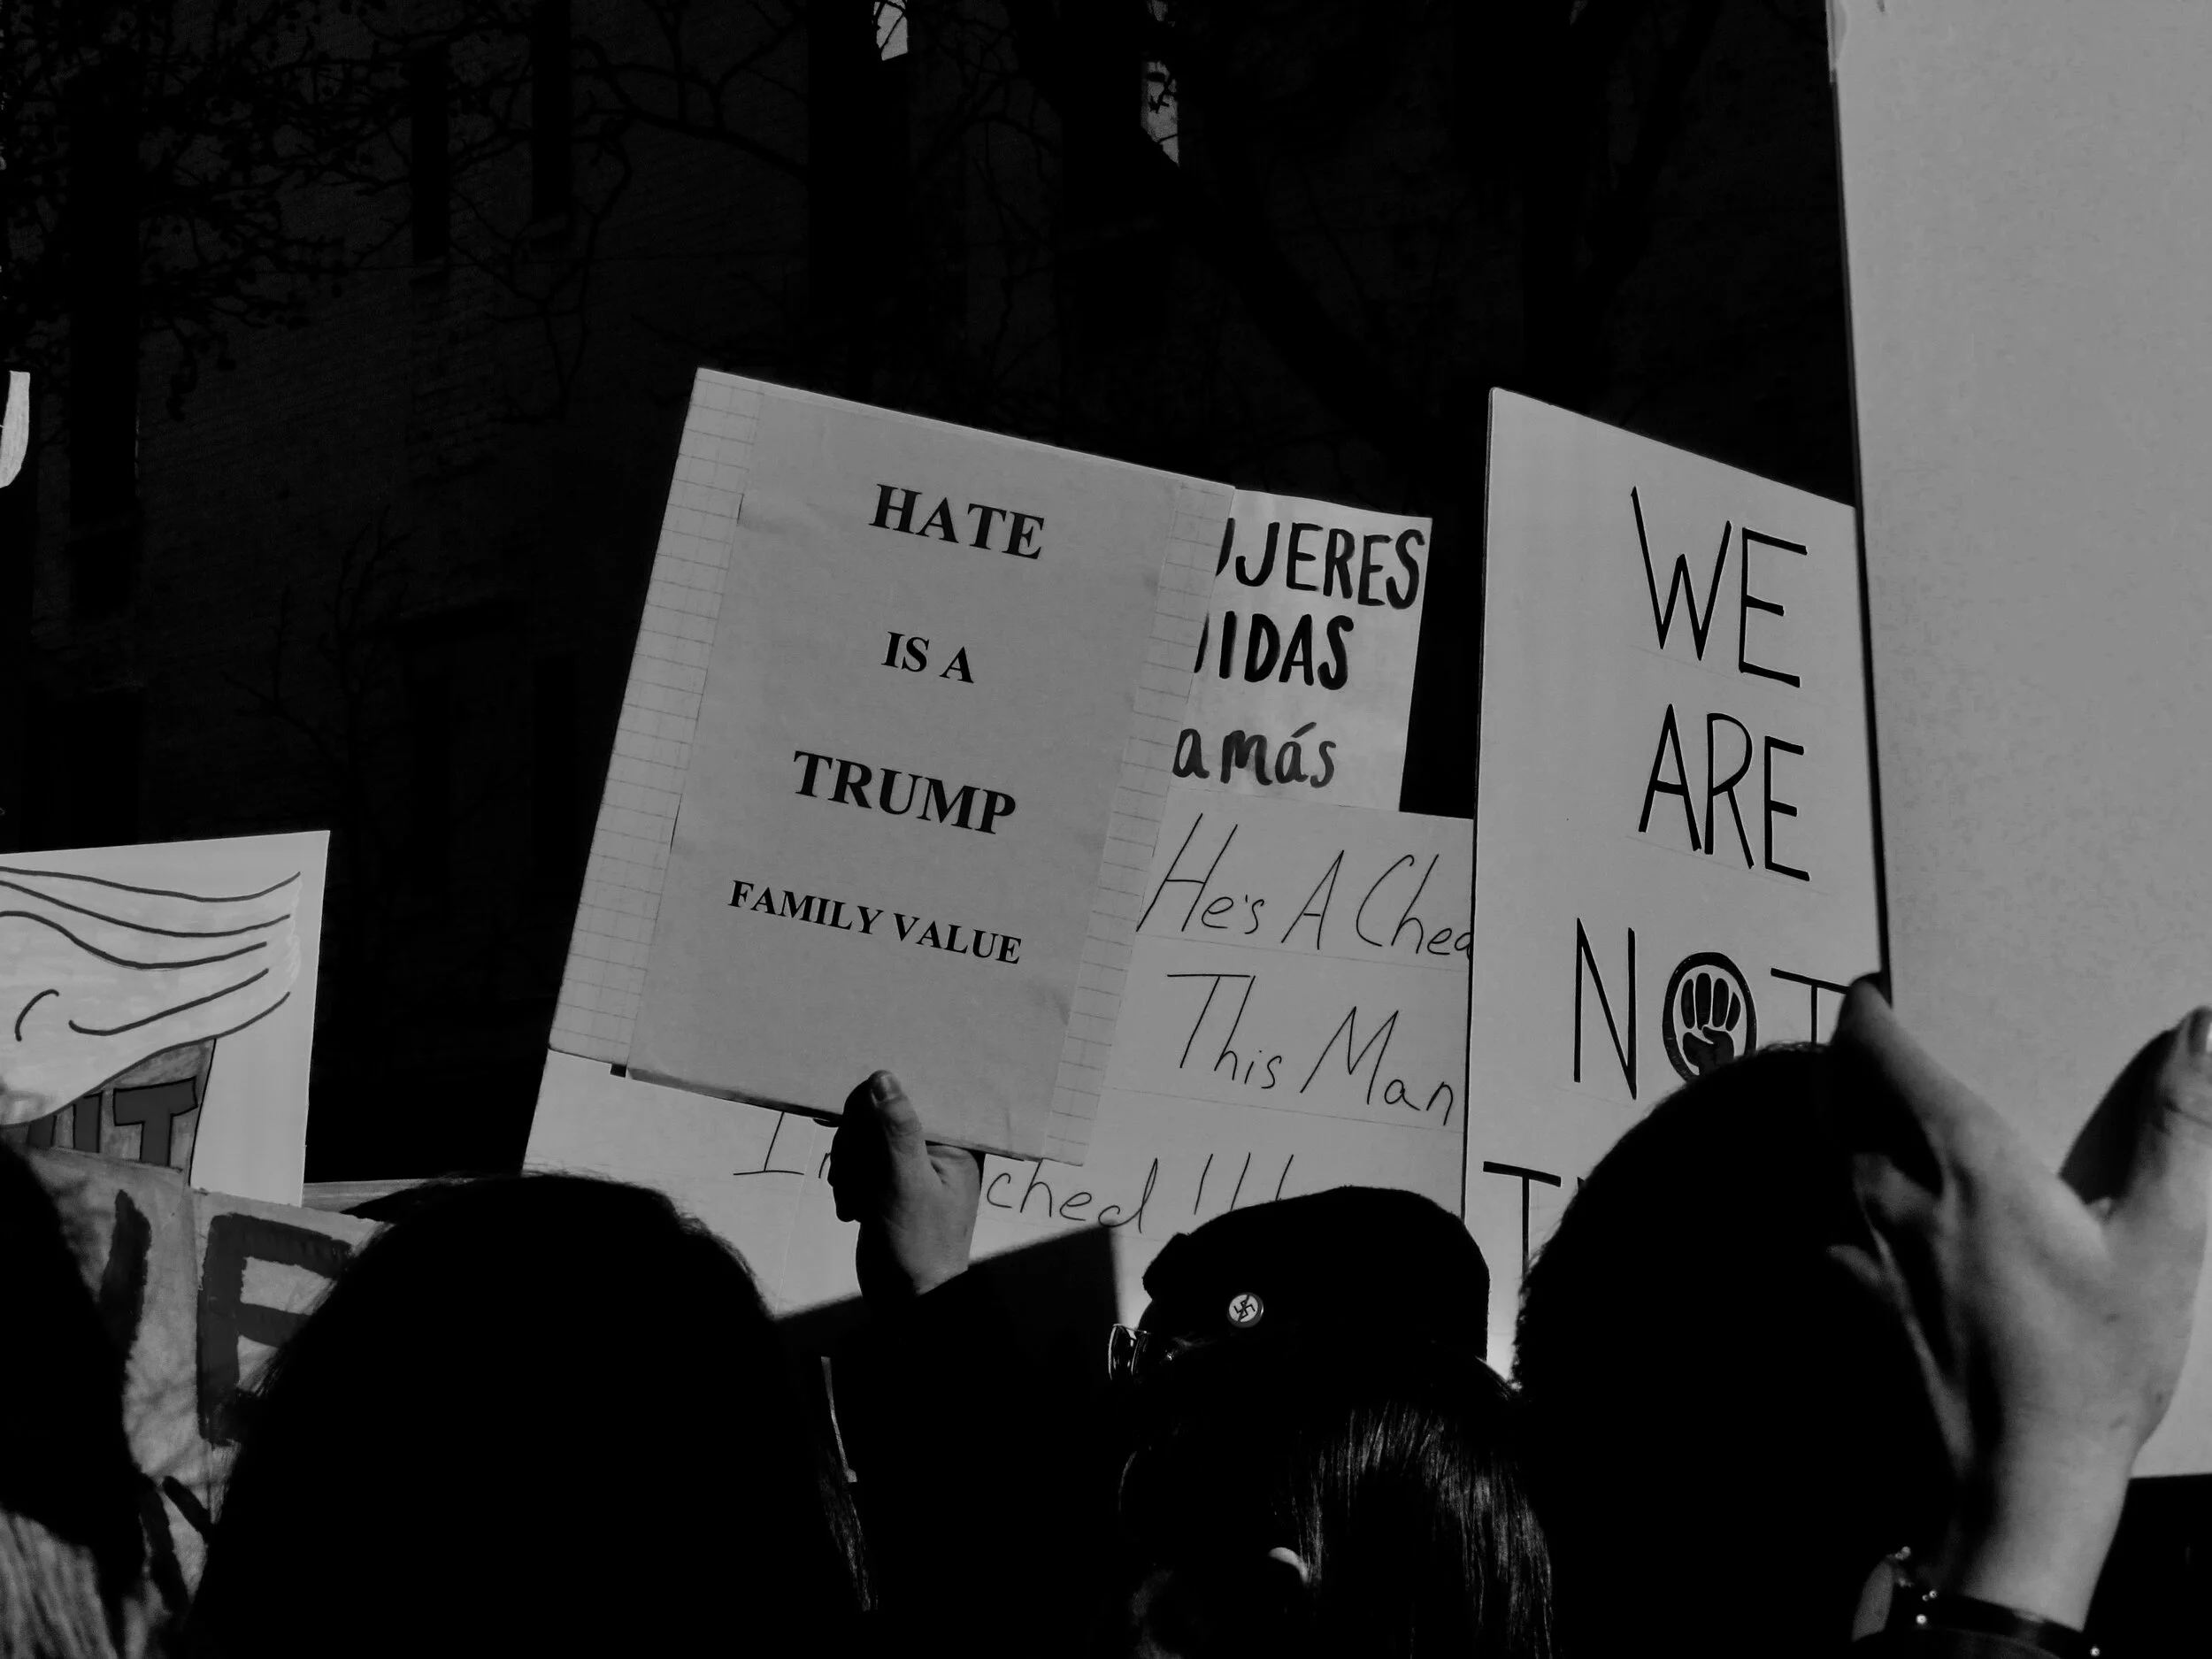 HATE
IS A
TRUMP
FAMILY VALUE
UJERES
IDAS
amás
He's A Chea
This Man
ched !!!
WE
ARE
NOT